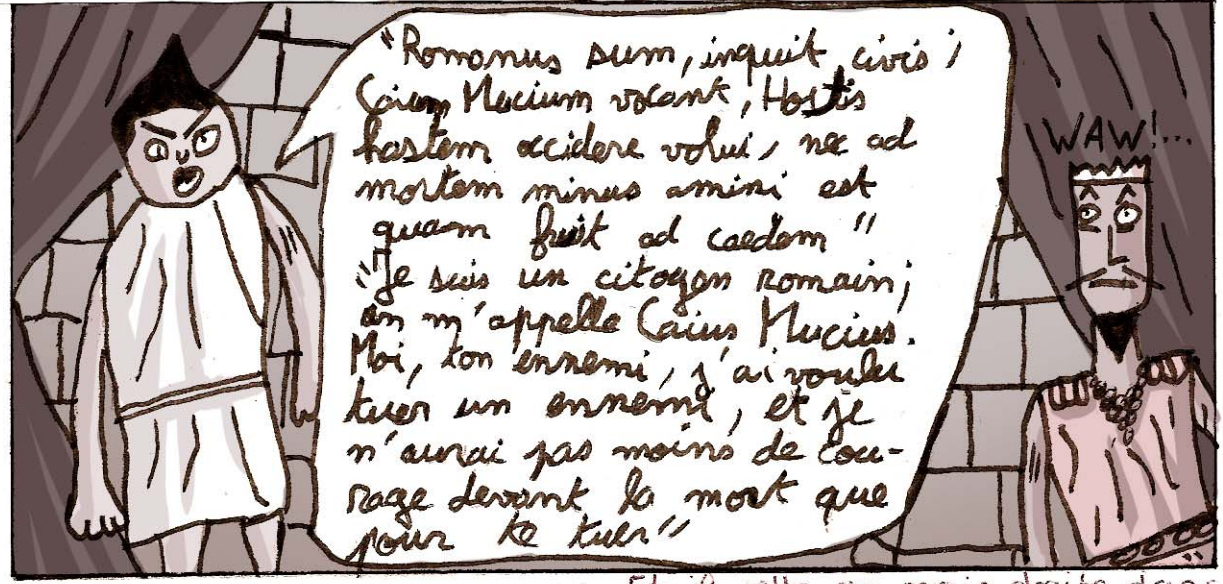 "Romanus sum, inquit, civis ;
Caium Mucium vocant, Hostis
hostem occidere volui, nec ad
mortem minus amini est
quam fuit ad caedem"
"Je suis un citoyen romain;
on m'appelle Caius Mucius.
Moi, ton ennemi, j'ai voulu
tuer un ennemi, et je
n'aurai pas moins de cou-
rage devant la mort que
pour te tuer"
WAW!...
main droite dans